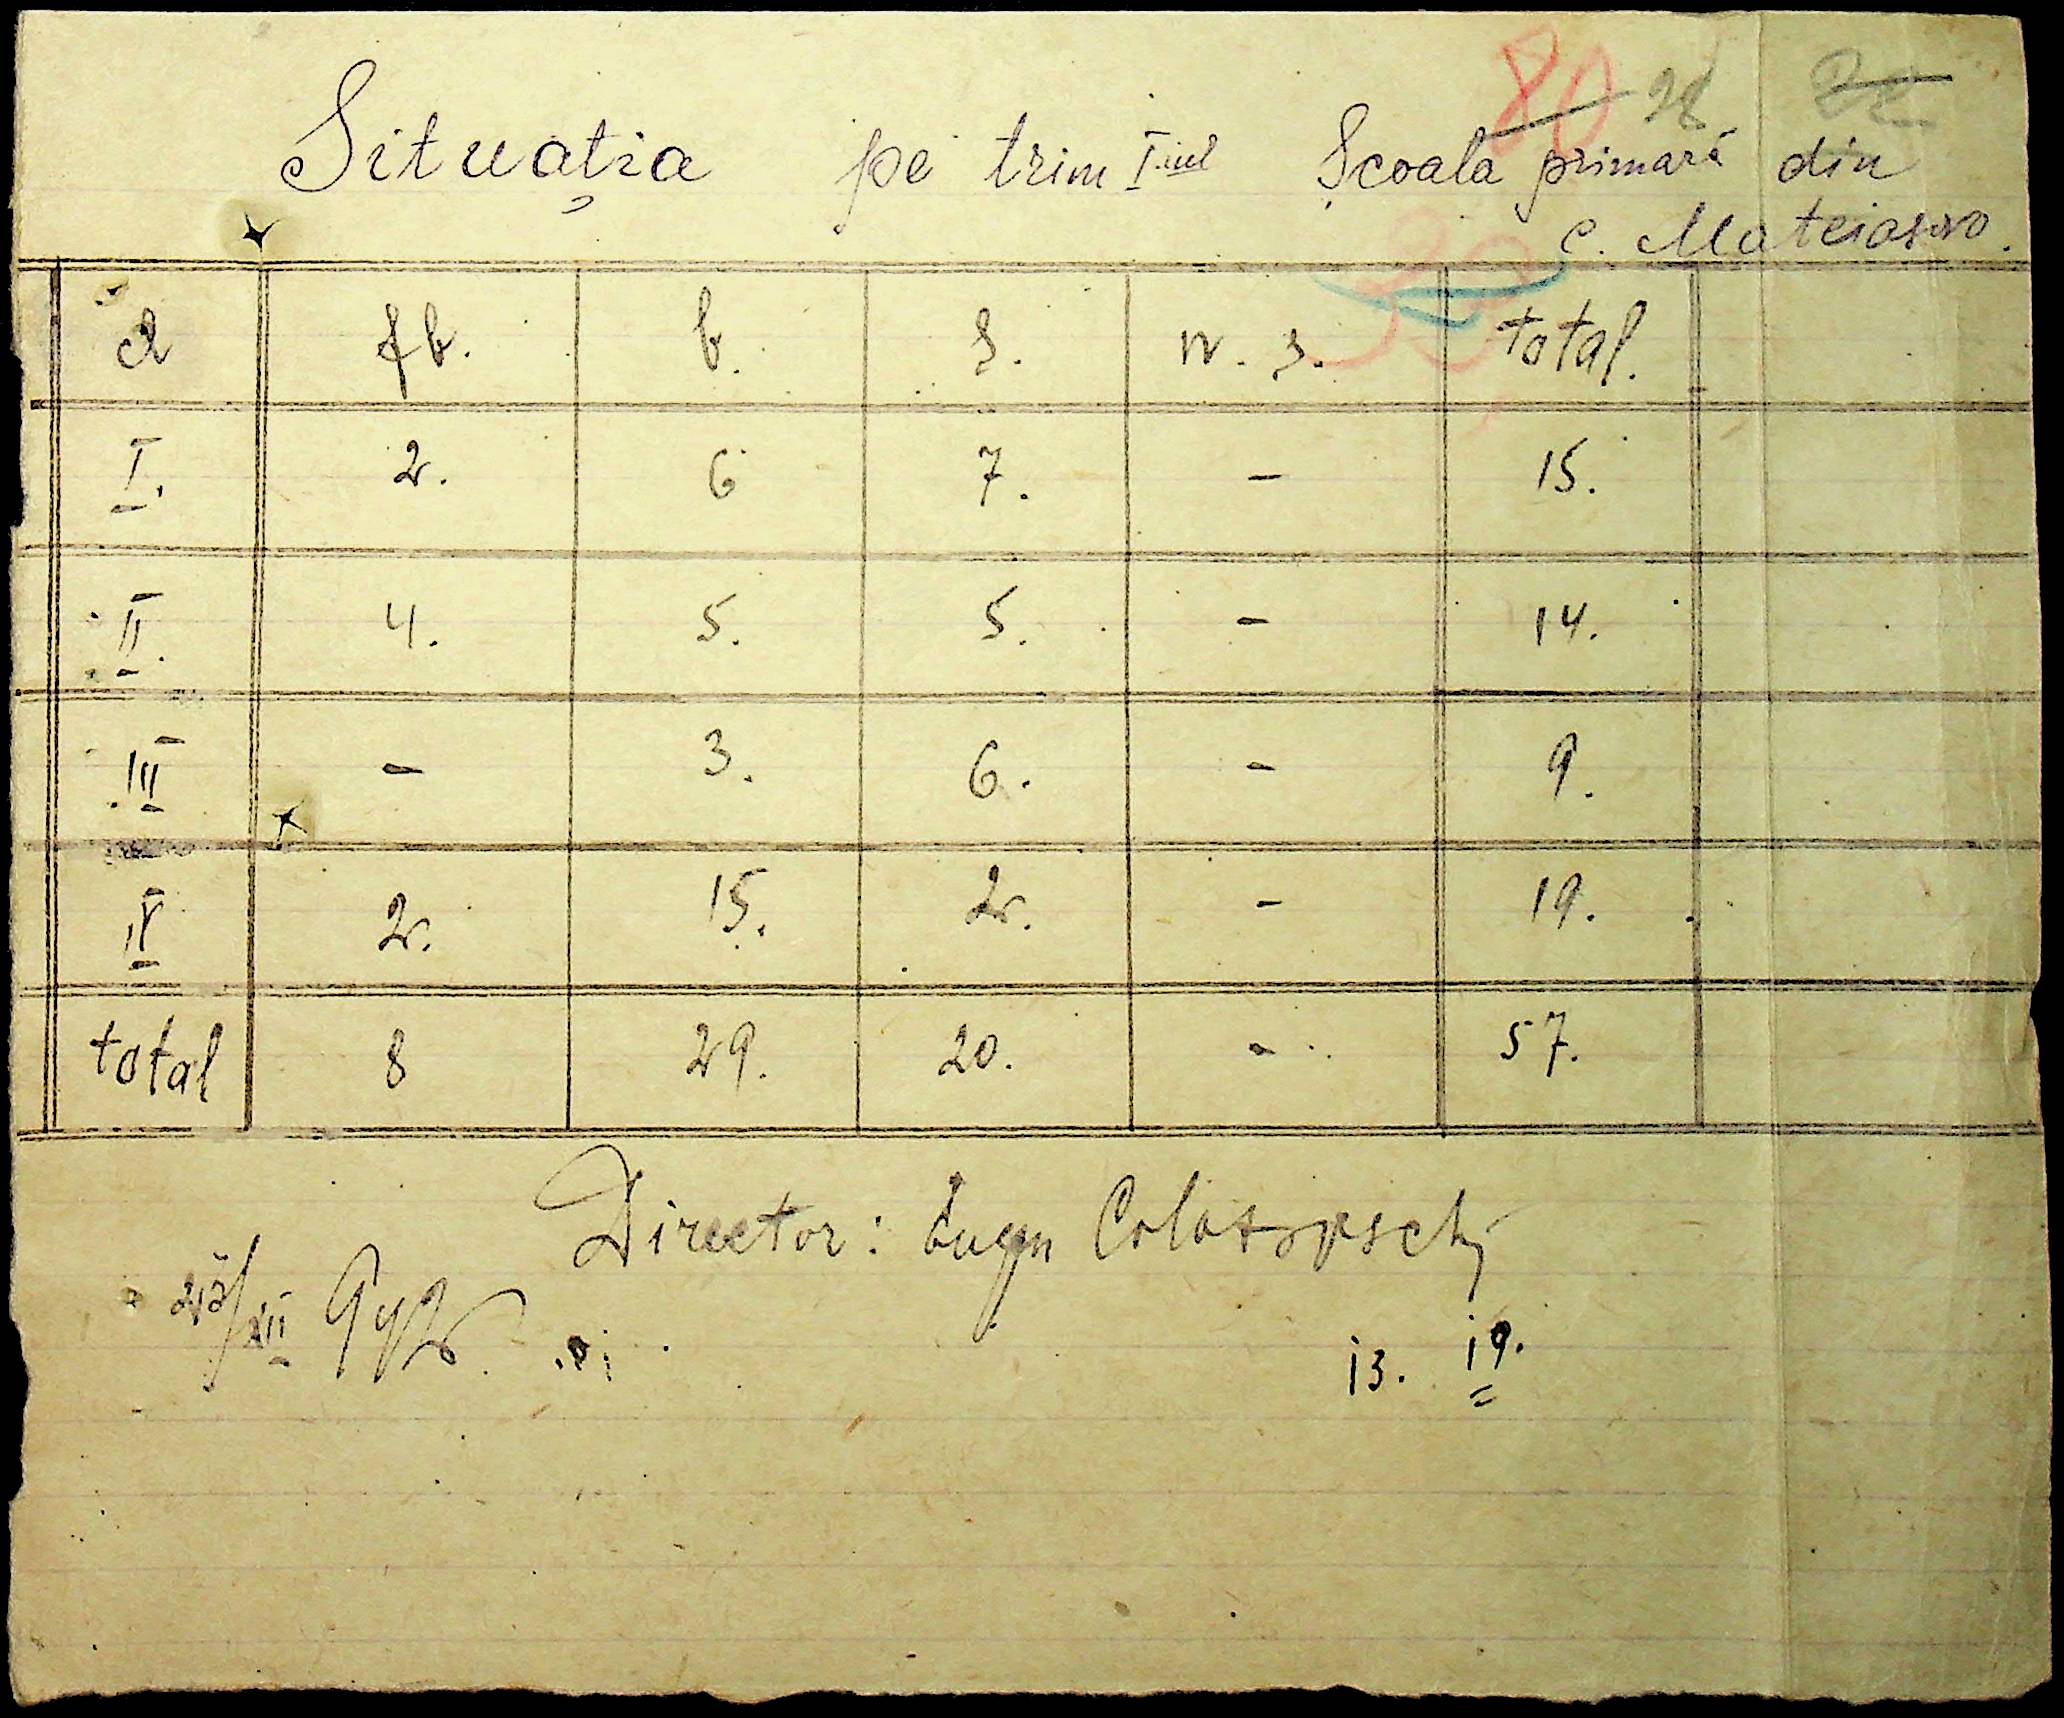 80 28
Situația pe trim I-iul Școala primară din
c. Mateiasovo.
cl fb. b. s. n. s. total.
I. 2. 6 7. - 15.
II. 4. 5. 5. - 14.
III - 3. 6. - 9.
IV 2. 15. 2. - 19.
total 8 29. 20. - 57.
Director: Eugen
XII 942
13. 19.